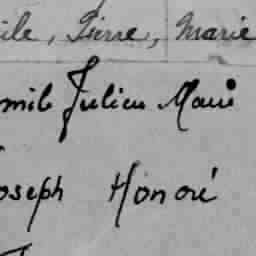 ile, Pierre, Marie
mile Julien Marie
oseph Honoré